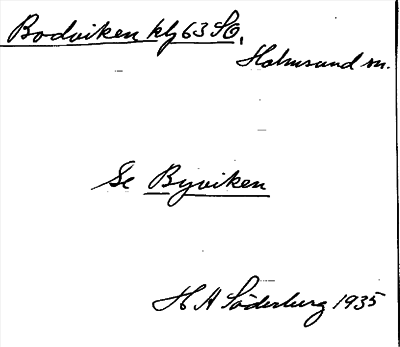 Bodviken klj 63 SO,
Holmsund sn.
Se Byviken
H A Söderberg 1935